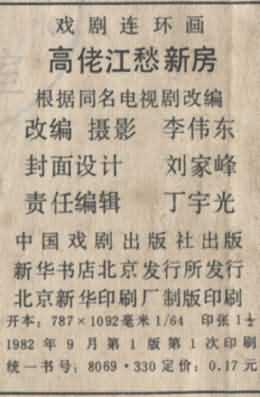 戏剧连环画
高佬江愁新房
根据同名电视剧改编
改编 摄影 李伟东
封面设计 刘家峰
责任编辑 丁宇光
中国戏剧出版社出版
新华书店北京发行所发行
北京新华印刷厂制版印刷
开本：787×1092毫米1/64 印张1½
1982年9月第1版第1次印刷
统一书号：8069·330定价：0.17元